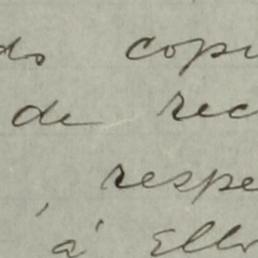 ds copi
de rec
respe
á Ello